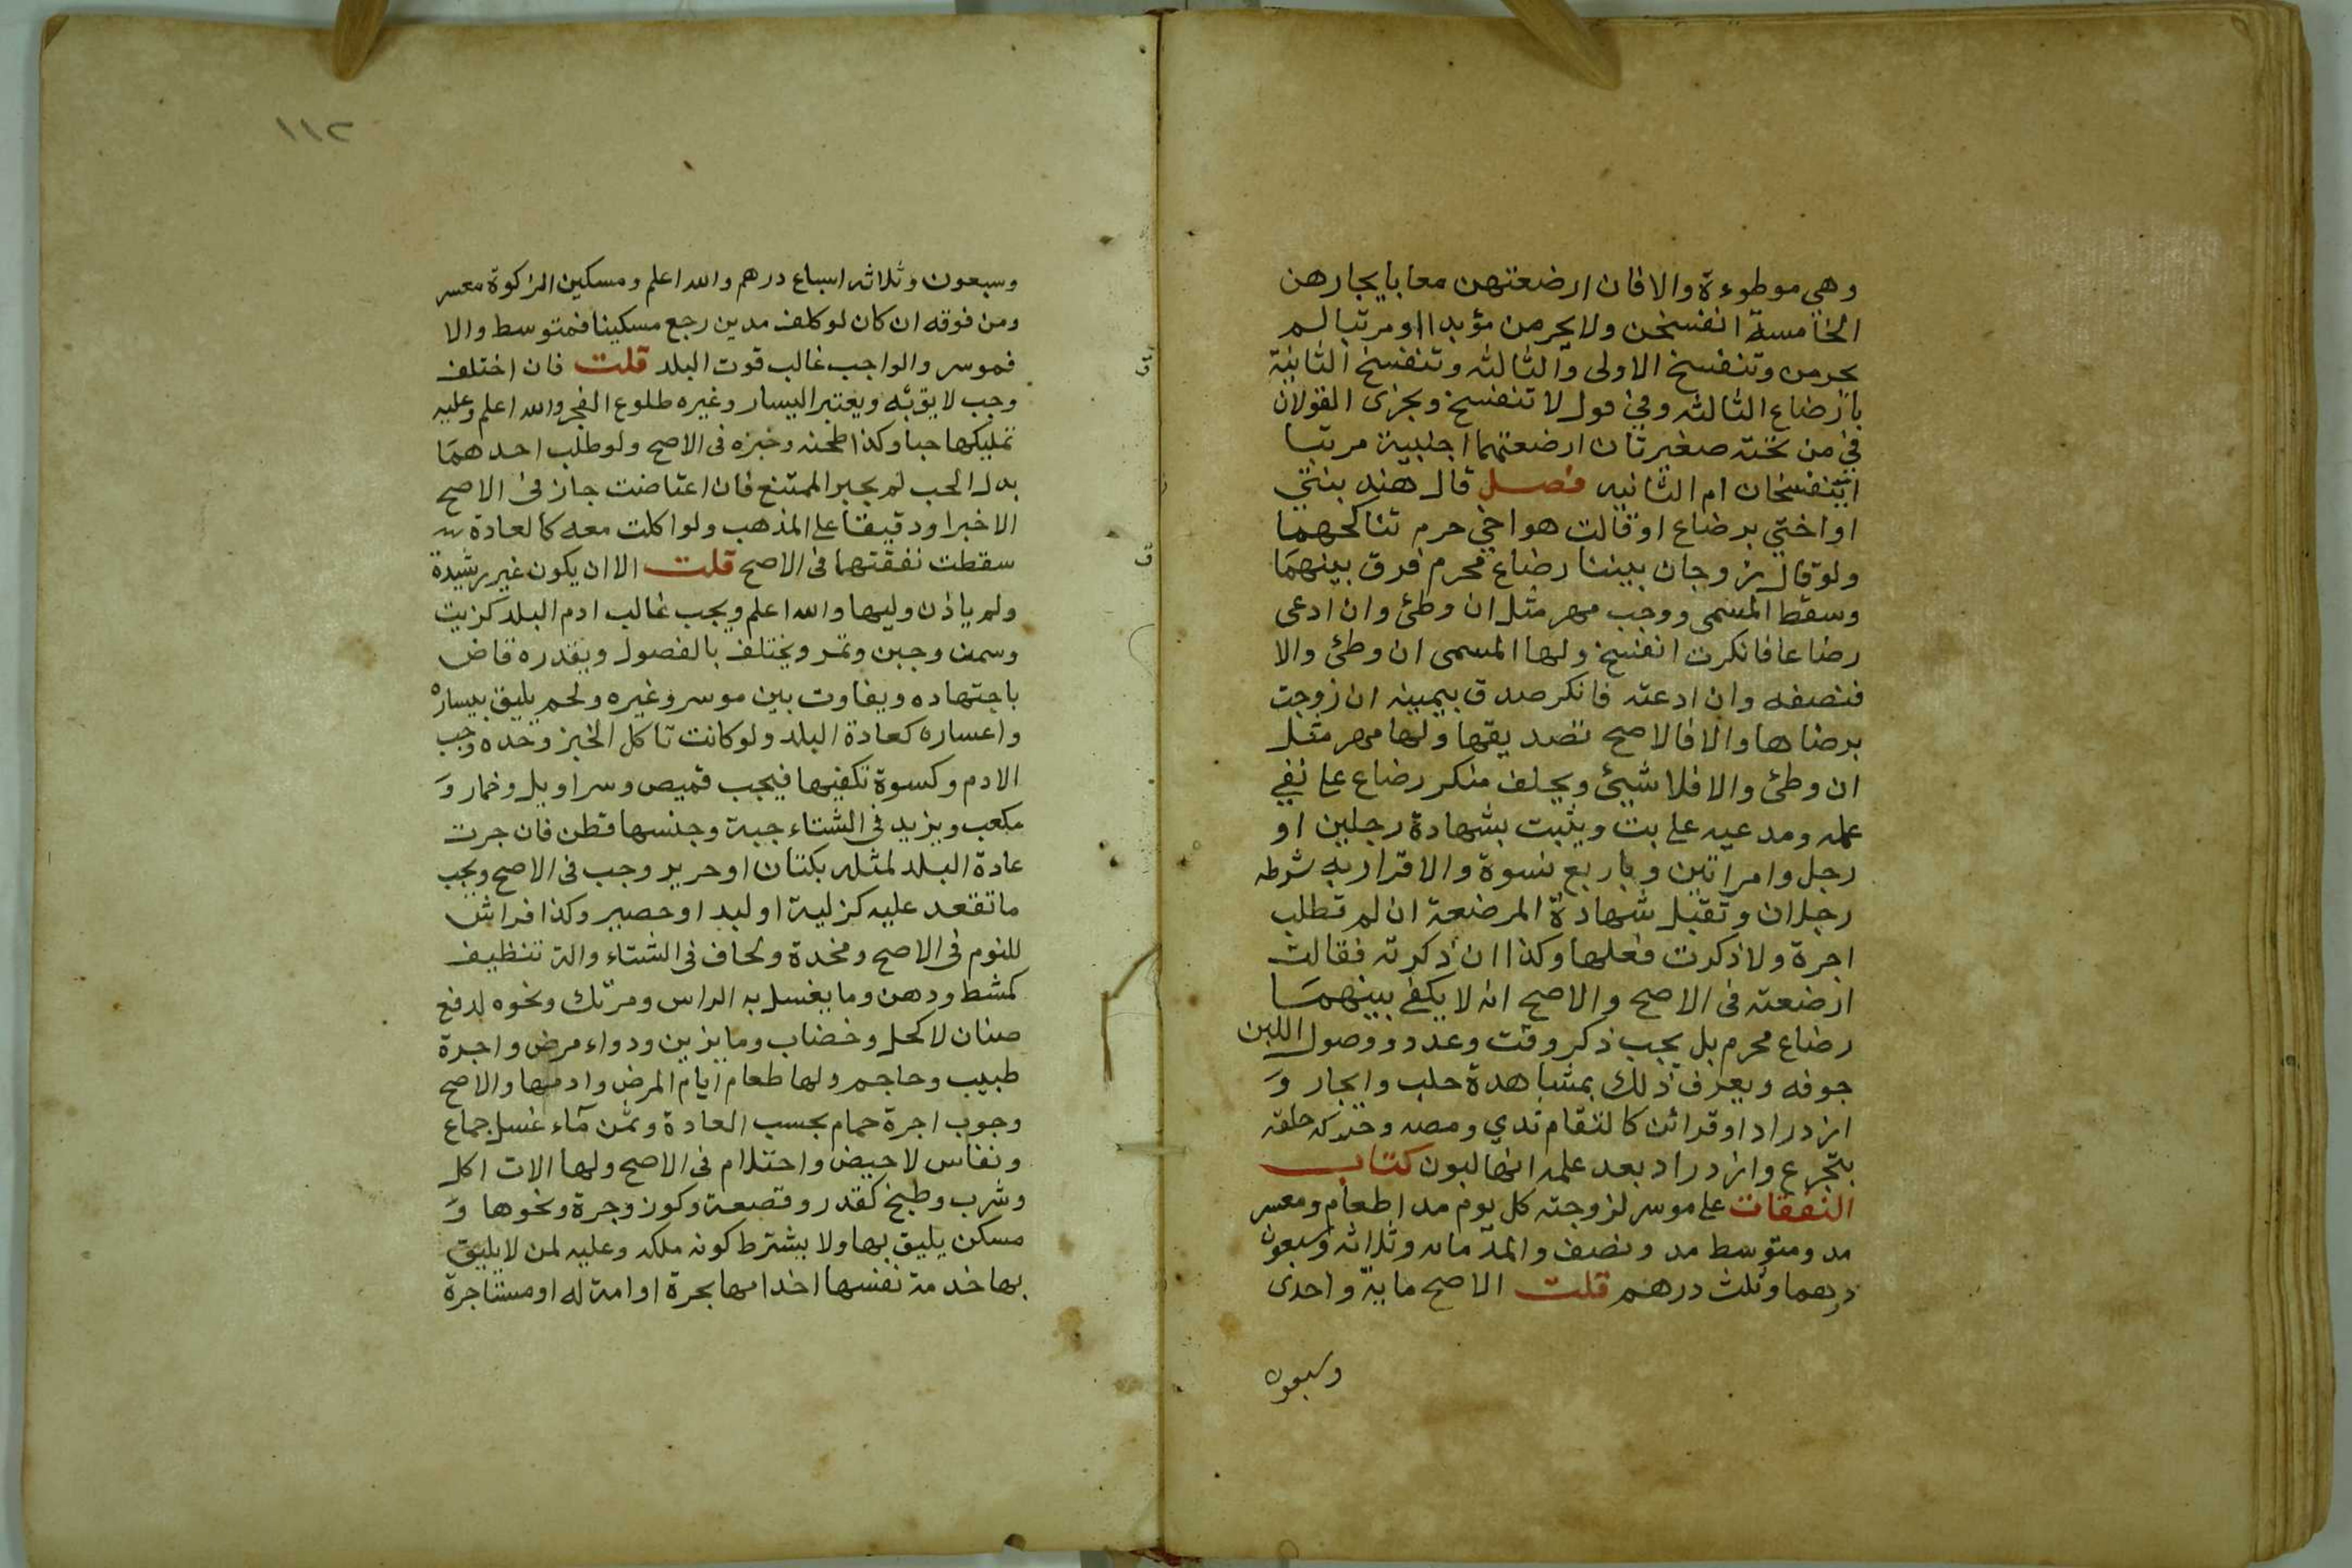 وهي موطوءة والا فان ارضعتهن معا بايجارهن
الخامسة انفسخن ولا يحرمن مؤبدا او مرتبا لم
يحرمن وتنفسخ الاولى والثالثه وتنفسخ الثانية
بارضاع الثالثه وفي قول لا تنفسخ ويجزى القولان
في من تحته صغيرتان ارضعتهما اجنبية مرتبا
اتنفسخان ام الثانيه فصل قال هند بنتي
او اختي برضاع او قالت هو اخي حرم تناكحهما
ولو قال زوجان بيننا رضاع محرم فرق بينهما
وسقط المسمى ووجب مهر مثل ان وطئ وان ادعى
رضاعا فانكرت انفسخ ولها المسمى ان وطئ والا
فنصفه وان ادعته فانكر صدق بيمينه ان زوجت
برضاها والا فالاصح تصديقها ولها مهر مثل
ان وطئ والا فلا شيئ ويحلف منكر رضاع على نفي
علمه ومدعيه على بت ويثبت بشهادة رجلين او
رجل وامراتين وباربع نسوة والاقرار به شرطه
رجلان وتقبل شهادة المرضعة ان لم تطلب
اجرة ولا ذكرت فعلها وكذا ان ذكرته فقالت
ارضعته في الاصح والاصح انه لا يكفي بينهما
رضاع محرم بل يجب ذكر وقت وعدد ووصول اللبن
جوفه ويعرف ذلك بمشاهدة حلب وايجار و
ازدراد او قرائن كالتقام ثدي ومصه وحركة حلقه
بتجرع وازدراد بعد علمه انها لبون كتاب
النفقات على موسر لزوجته كل يوم مدا طعام ومعسر
مد ومتوسط مد ونصف والمد مائه وثلاثه وسبعون
درهما وثلث درهم قلت الاصح ماية واحدى
وسبعون
١١٢
وسبعون وثلاثه اسباع درهم والله اعلم ومسكين الزكوة معسر
ومن فوقه ان كان لو كلف مدين رجع مسكينا فمتوسط والا
فموسر والواجب غالب قوت البلد قلت فان اختلف
وجب لايق به ويعتبر اليسار وغيره طلوع الفجر والله اعلم وعليه
تمليكها حبا وكذا طحنه وخبزه في الاصح ولو طلب احدهما
بدل الحب لم يجبر الممتنع فان اعتاضت جاز في الاصح
الا خبزا او دقيقا على المذهب ولو اكلت معه كالعادة
سقطت نفقتها في الاصح قلت الا ان يكون غير رشيدة
ولم ياذن وليها والله اعلم ويجب غالب ادم البلد كزيت
وسمن وجبن وتمر ويختلف بالفصول ويقدره قاض
باجتهاده ويفاوت بين موسر وغيره ولحم يليق بيساره
واعساره كعادة البلد ولو كانت تاكل الخبز وحده وجب
الادم وكسوة تكفيها فيجب قميص وسراويل وخمار و
مكعب ويزيد في الشتاء جبة وجنسها قطن فان جرت
عادة البلد لمثله بكتان او حرير وجب في الاصح ويجب
ما تقعد عليه كزلية او لبد او حصير وكذا فراش
للنوم في الاصح ومخدة ولحاف في الشتاء والة تنظيف
كمشط ودهن وما يغسل به الراس ومرتك ونحوه لدفع
صنان لا كحل وخضاب وما يزين ودواء مرض واجرة
طبيب وحاجم ولها طعام ايام المرض وادمها والاصح
وجوب اجرة حمام بحسب العادة وثمن ماء غسل جماع
ونفاس لا حيض واحتلام في الاصح ولها الات اكل
وشرب وطبخ كقدر وقصعة وكوز وجرة ونحوها و
مسكن يليق بها ولا يشترط كونه ملكه وعليه لمن لا يليق
بها خدمة نفسها اخدامها بحرة او امة له او مستاجرة